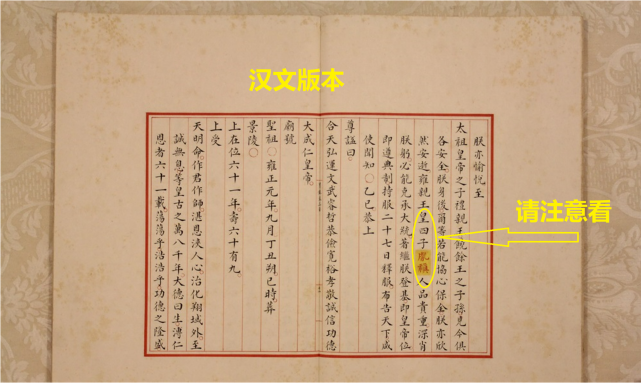 汉文版本
请注意看
朕亦愉悅至
太祖皇帝之子禮親王饒餘王之子孫見今俱
各安全朕身後爾等若能協心保全朕亦欣
然安逝雍親王皇四子胤禛人品貴重深肖
朕躬必能克承大統著繼朕登基即皇帝位
即遵典制持服二十七日釋服布告天下咸
使聞知○乙巳恭上
尊謚曰
合天弘運文武睿哲恭儉寬裕孝敬誠信功德
大成仁皇帝
廟號
聖祖○雍正元年九月丁丑朔巳時葬
景陵○
上在位六十一年壽六十有九
上受
天明命作君作師湛恩浹人心治化翔域外至
誠無息等皇古之萬八千年大德曰生溥仁
恩者六十一載蕩蕩乎浩浩乎功德之隆盛